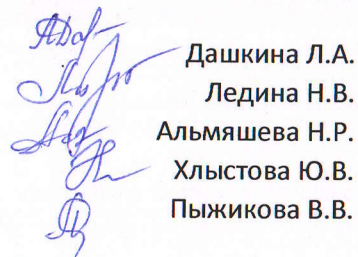 Дашкина Л.А.
Ледина Н.В.
Альмяшева Н.Р.
Хлыстова Ю.В.
Пыжикова В.В.